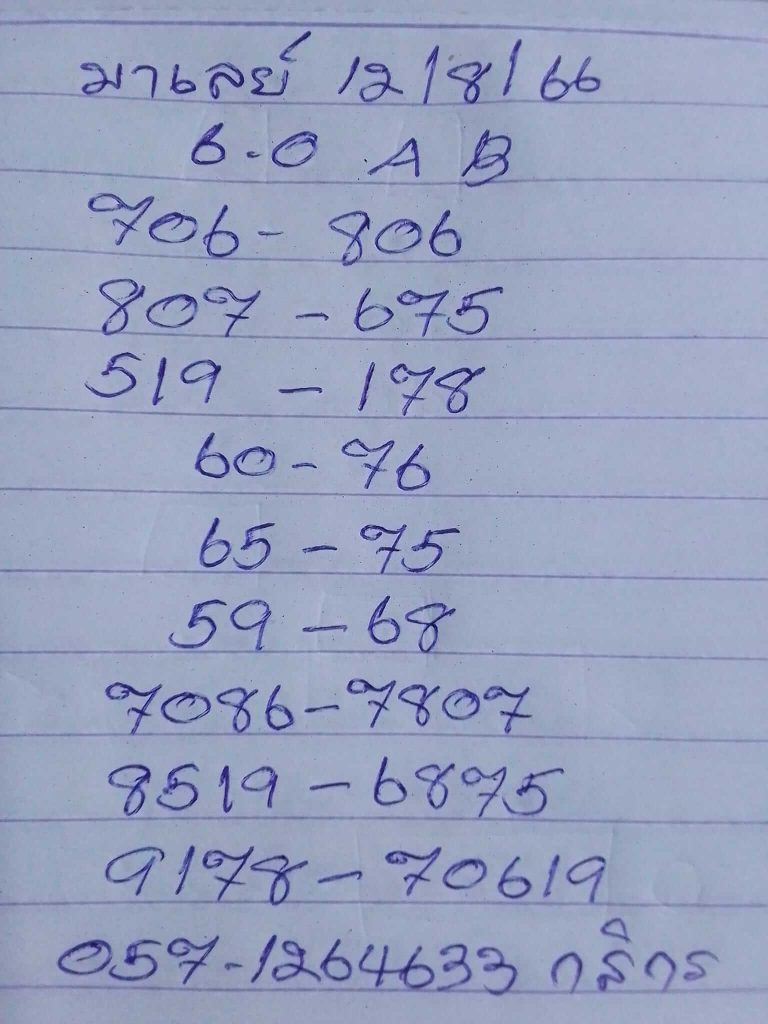 มาเลย์ 12/8/66
6-0 A B
706 - 806
807 - 675
519 - 178
60 - 76
65 - 75
59 - 68
7086 - 7807
8519 - 6875
9178 - 70619
057-1264633 กสิกร